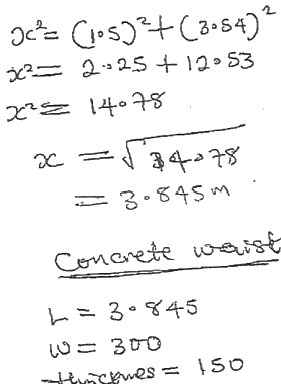 x² = (1.5)² + (3.54)²
x² = 2.25 + 12.53
x² = 14.78
x = √14.78
= 3.845m
Concrete waist
L = 3.845
W = 300
thickness = 150